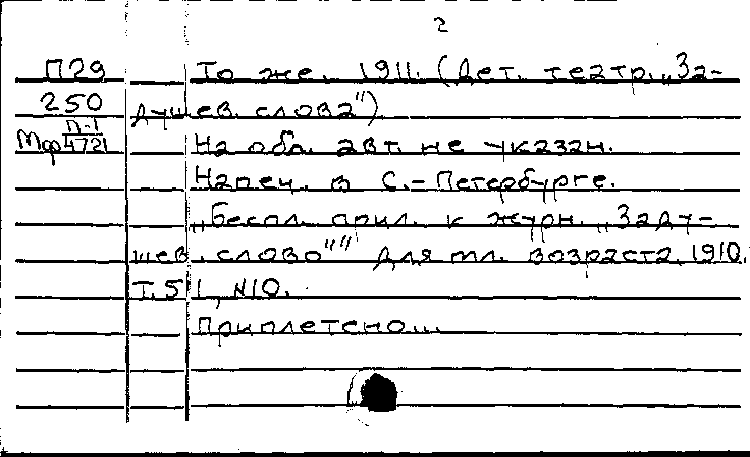 2
П29 То же. 1911. (Дет. театр. „За-
250 душев. слова").
Мф П-1/4721 На обл. авт. не указан.
Напеч. в С.-Петербурге.
„Беспл. прил. к журн. „Заду-
шев. слово"" для мл. возраста. 1910.
Т. 51, N10.
Приплетено...